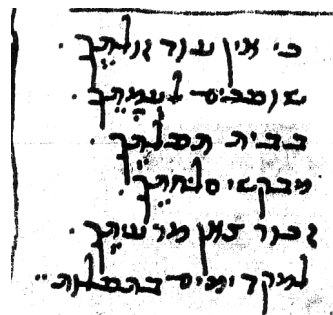 כי אין עוד זולתך .
לעמתך .
בבית תפלתך .
מבקשי סלחתך .
זכור צאן מרעיתך .
למקדימים בתפלות